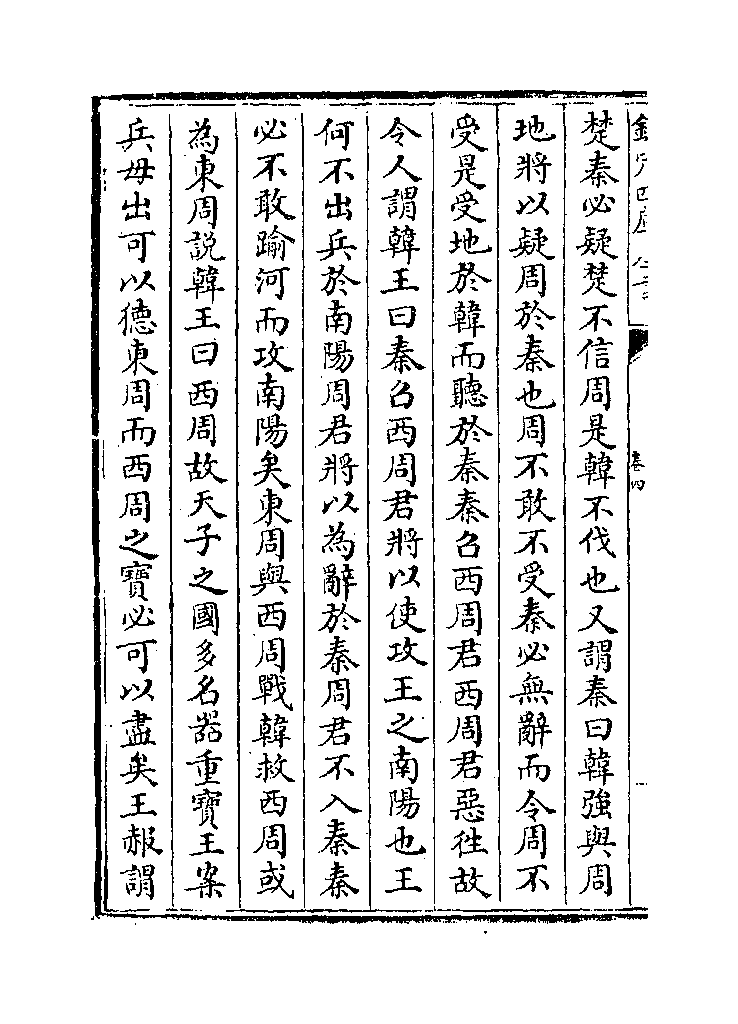 楚秦必疑楚不信周是韓不伐也又謂秦曰韓強與周
地將以疑周於秦也周不敢不受秦必無辭而令周不
受是受地於韓而聽於秦秦召西周君西周君惡往故
令人謂韓王曰秦召西周君將以使攻王之南陽也王
何不出兵於南陽周君將以為辭於秦周君不入秦秦
必不敢踰河而攻南陽矣東周與西周戰韓救西周或
為東周說韓王曰西周故天子之國多名器重寶王案
兵毋出可以德東周而西周之寶必可以盡矣王赧謂
卷四